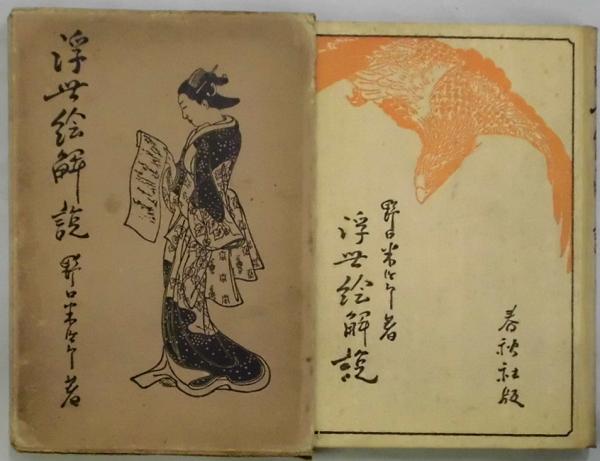 浮世絵解説
野口米次郎著
野口米次郎著
浮世絵解説
春秋社版